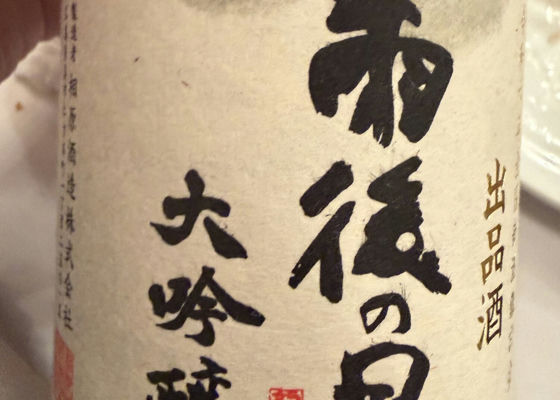 出品酒
雨後の月
大吟醸
製造者 相原酒造株式会社